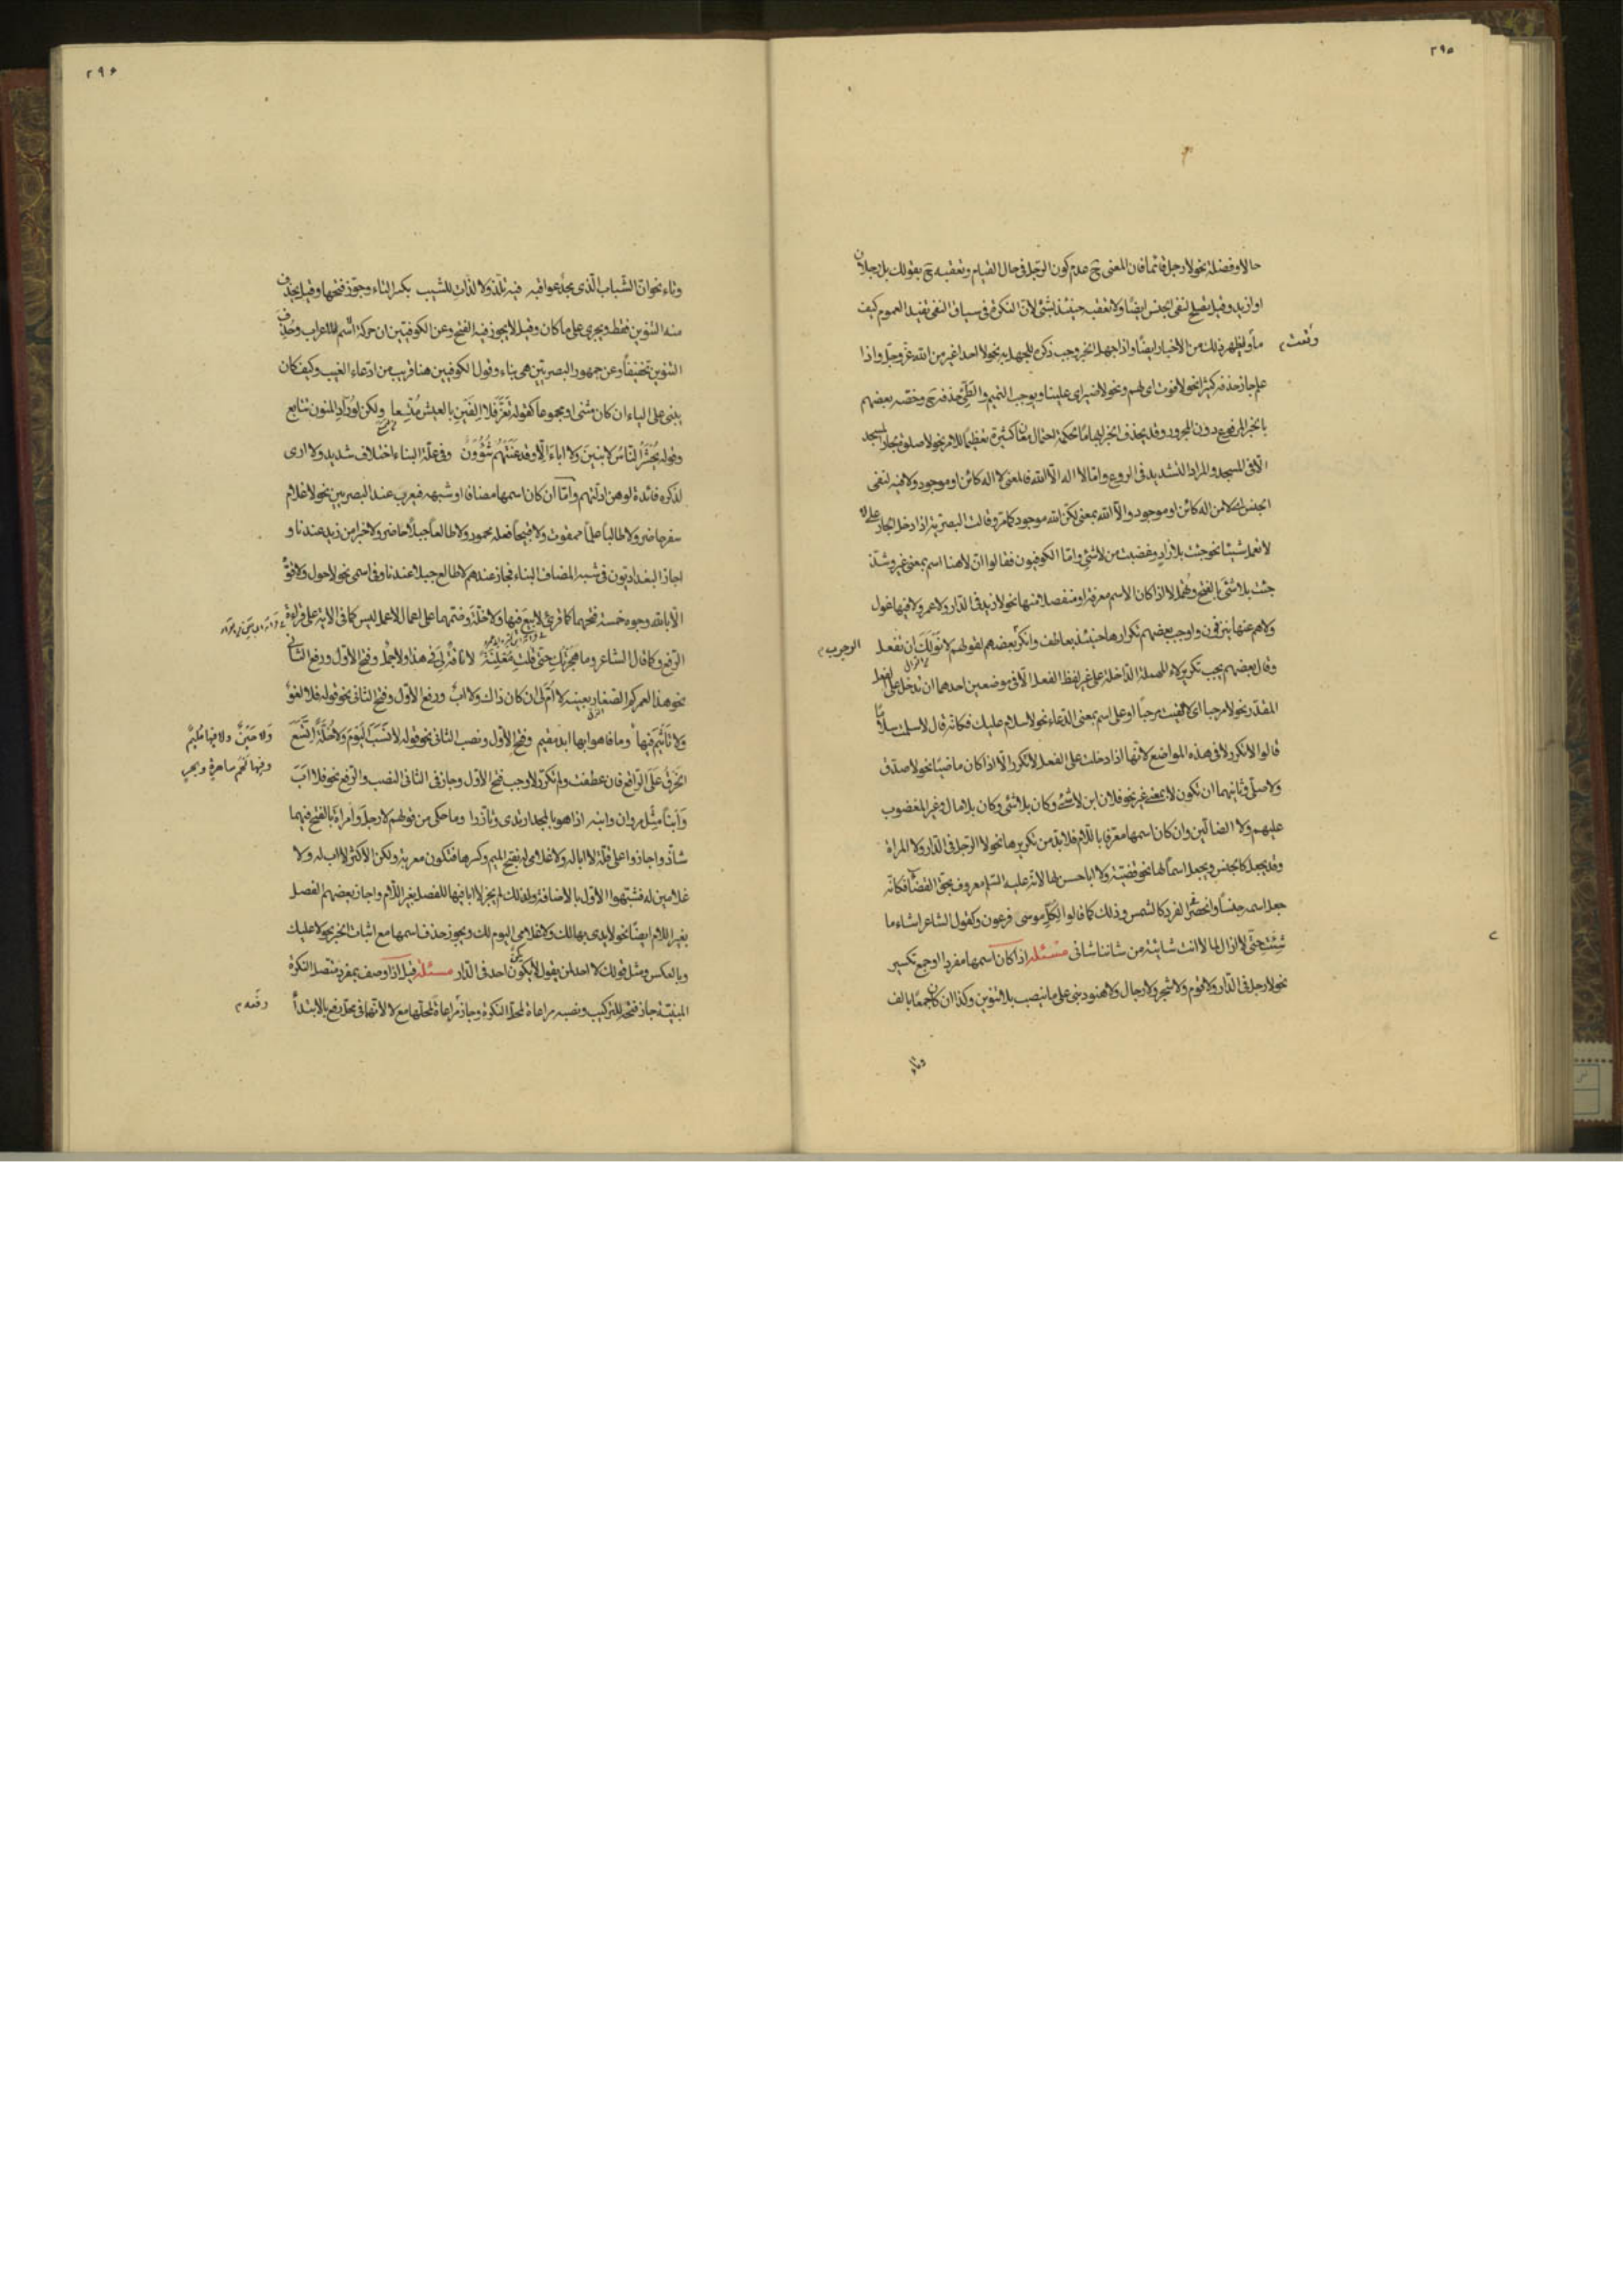 ٢٩٥
حالا وفضلة نحو لا رجل قائما فان المعنى ح عدم كون الرجل فى حال القيام وتعقبه ح بقولك بل رجلان
او ازيد وقيل يصلح لنفى الجنس ايضا ولا تعقب حينئذ بشئ لان النكرة فى سياق النفى تفيد العموم كيف
وقعت م
ما ويظهر ذلك من الاخبار ايضا واذا جهل الخبر وجب ذكره للجهل به نحو لا احد اغير من الله عز وجل واذا
علم جاز حذفه كثيرا نحو لا فوت اى لهم ونحو لا ضير اى علينا ويوجب التميم والطى حذفه ح وخصه بعضهم
بالخبر المرفوع دون المجرور وقد يحذف الخبر ابهاما لحكمة احتمال معان كثيرة تعظيما للامر نحو لا صلوة لجار المسجد
الا فى المسجد والمراد التشديد فى الروع واما لا اله الا الله فالمعنى لا اله كائن او موجود ولا فيه لنفى
الجنس اى لا من اله كائن او موجود والا الله بمعنى لكن الله موجود كما مر وقالت البصرية اذا دخل الجار على لا
لا تعمل شيئا نحو جئت بلا زاد وغضبت من لا شئ واما الكوفيون فقالوا ان لا هنا اسم بمعنى غير وشذ
جئت بلا شئ بالفتح وتهمل لا اذا كان الاسم معرفة او منفصلا منها نحو لا زيد فى الدار ولا عمرو ولا فيها غول
ولا هم عنها ينزفون واوجب بعضهم تكرارها حينئذ بعاطف وانكر بعضهم لقولهم لا نولك ان تفعل
الوجوب م
وقال بعضهم يجب تكرير لا المهملة الداخلة على غير لفظ الفعل الا فى موضعين احدهما ان تدخل على الفعل
المقدر نحو لا مرحبا اى لا لقيت مرحبا او على اسم بمعنى الدعاء نحو لا سلام عليك فكانه قال لا سلمت سلاما
قالوا لا تكرر لا فى هذه المواضع لانها اذا دخلت على الفعل لا تكرر الا اذا كان ماضيا نحو لا صدق
ولا صلى وثانيهما ان تكون لا بمعنى غير نحو فلان ابن لا شئ وكان بلا شئ وكان بلا مال وغير المغضوب
عليهم ولا الضالين وان كان اسمها معرفا باللام فلا بد من تكريرها نحو لا الرجل فى الدار ولا المراة
وقد يجعل كالجنس ويجعل اسما لها نحو قضية ولا ابا حسن لها لانه عليه السلم معروف بحق القضاء فكانه
جعل اسمه جنسا وانحصر الفرد كالشمس وذلك كما قالوا لكل موسى فرعون وكقول الشاعر اشاء ما
شئت حتى لا ازال لما لا انت شائية من شاننا شانى مسئلة اذا كان اسمها مفردا او جمع تكسير
نحو لا رجل فى الدار ولا قوم ولا شجر ولا رجال ولا هنود بنى على ما ينصب بلا تنوين وكذا ان كان جمعا بالف
وتاء
٢٩۶
وتاء نحو ان الشباب الذى مجد عواقبه فيه نلذ ولا لذات للشيب بكسر التاء وجوز فتحها وقيل يحذف
منه التنوين فقط ويجرى على ما كان وقيل لا يجوز فيه الفتح وعن الكوفيين ان حركة اسم لا اعراب وحذف
التنوين تخفيفا وعن جمهور البصريين هى بناء وقول الكوفيين هنا قريب من ادعاء الغيب وكيف كان
يبنى على الياء ان كان مثنى او مجموعا كقوله تعز فلا الفين بالعيش متعا ولكن لوراد المنون تتابع
وقوله يحشر الناس لا بنين ولا اباء الا وقد عنتهم شؤون وفى علة البناء اختلاف شديد ولا ارى
لذكره فائدة لوهن ادلتهم واما ان كان اسمها مضافا او شبهه فيعرب عند البصريين نحو لا غلام
سفر حاضر ولا طالبا علما ممقوت ولا قبيحا فعله محمود ولا طالعا جبلا حاضر ولا خيرا من زيد عندنا و
اجاز البغداديون فى شبه المضاف البناء فجاز عندهم لا طالع جبلا عندنا وفى اسمى نحو لا حول ولا قوة
الا بالله وجوه خمسة فتحهما كما قرئ لا بيع فيها ولا خلة وضمهما على اعمال لا عمل ليس كما فى الاية على قراءة
الرفع وكما قال الشاعر وما هجرتك حتى قلت معلنة لا ناقة لى فى هذا ولا جمل وفتح الاول ورفع الثانى
نحو هذا لعمركم الصغار بعينه لا ام لى ان كان ذاك ولا اب ورفع الاول وفتح الثانى نحو قوله فلا لغو
ولا تاثيم فيها وما فاهوا به ابد مقيم وفتح الاول ونصب الثانى نحو قوله لا نسب اليوم ولا خلة اتسع
ولا حين ولا فيها مليم
وفيها لحم ساهرة وبحر
الخرق على الراقع فان عطفت ولم تكرر لا وجب فتح الاول وجاز فى الثانى النصب والرفع نحو فلا اب
وابنا مثل مروان وابنه اذا هو بالمجد ارتدى وتازرا وما حكى من قولهم لا رجل وامراة بالفتح فيهما
شاذ واجازوا على قلة لا ابا له ولا غلامى له بفتح الميم وكسرها فتكون معربة ولكن الاكثر لا اب له ولا
غلامين له فشبهوا الاول بالاضافة ولذلك لم يجز لا ابا فيها للفصل بغير اللام واجاز بعضهم الفصل
بغير اللام ايضا نحو لا يدى بها لك ولا غلامى اليوم لك ويجوز حذف اسمها مع اثبات الخبر نحو لا عليك
وبالعكس ومثل قولك لا احد لمن يقول لا يكون احد فى الدار مسئلة قيل اذا وصف بمفرد متصل النكرة
المبنية جاز فتحه للتركيب ونصبه مراعاة لمحل النكرة وجاز مراعاة لمحلها مع لا لانها فى محل رفع بالابتداء
رفعه م